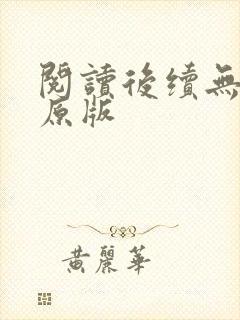 閱讀後續無
原版
黄麗華